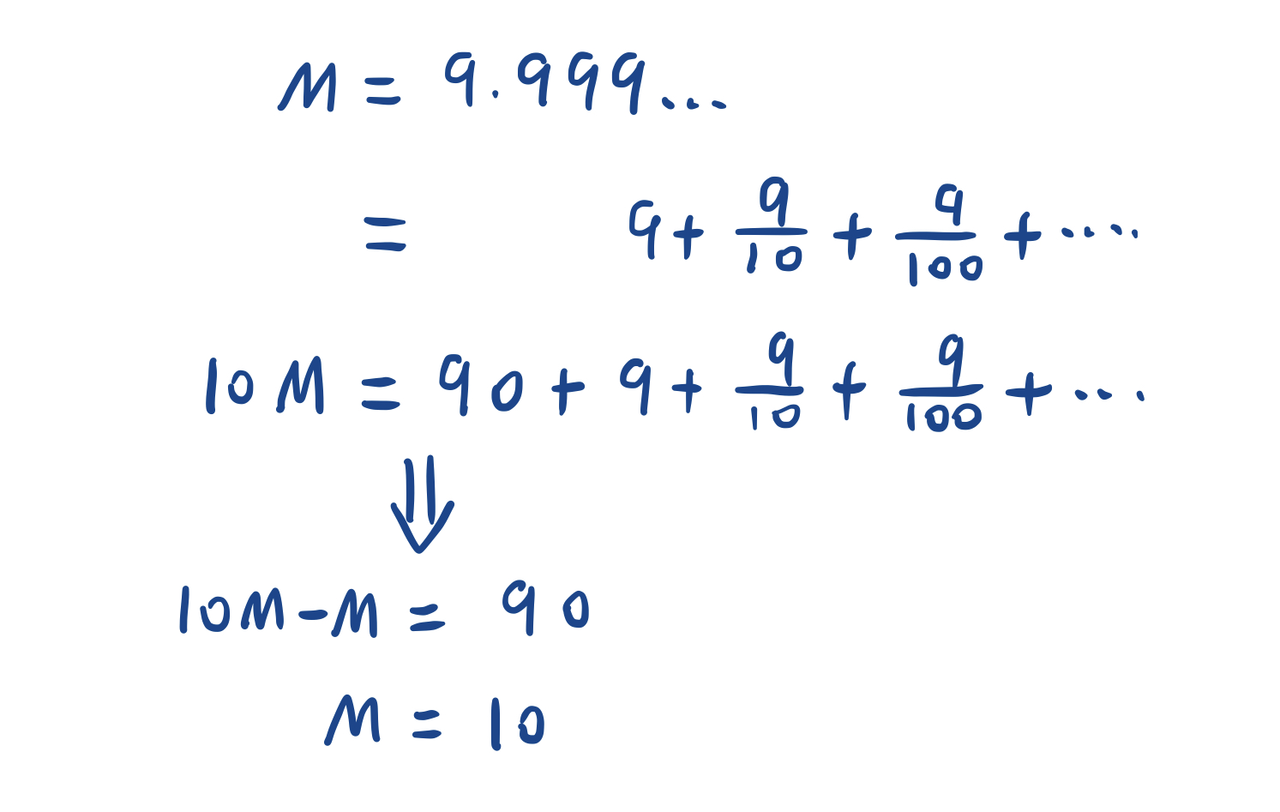 M = 9.999...
= 9 + 9/10 + 9/100 + ....
10M = 90 + 9 + 9/10 + 9/100 + ...
⇓
10M - M = 90
M = 10